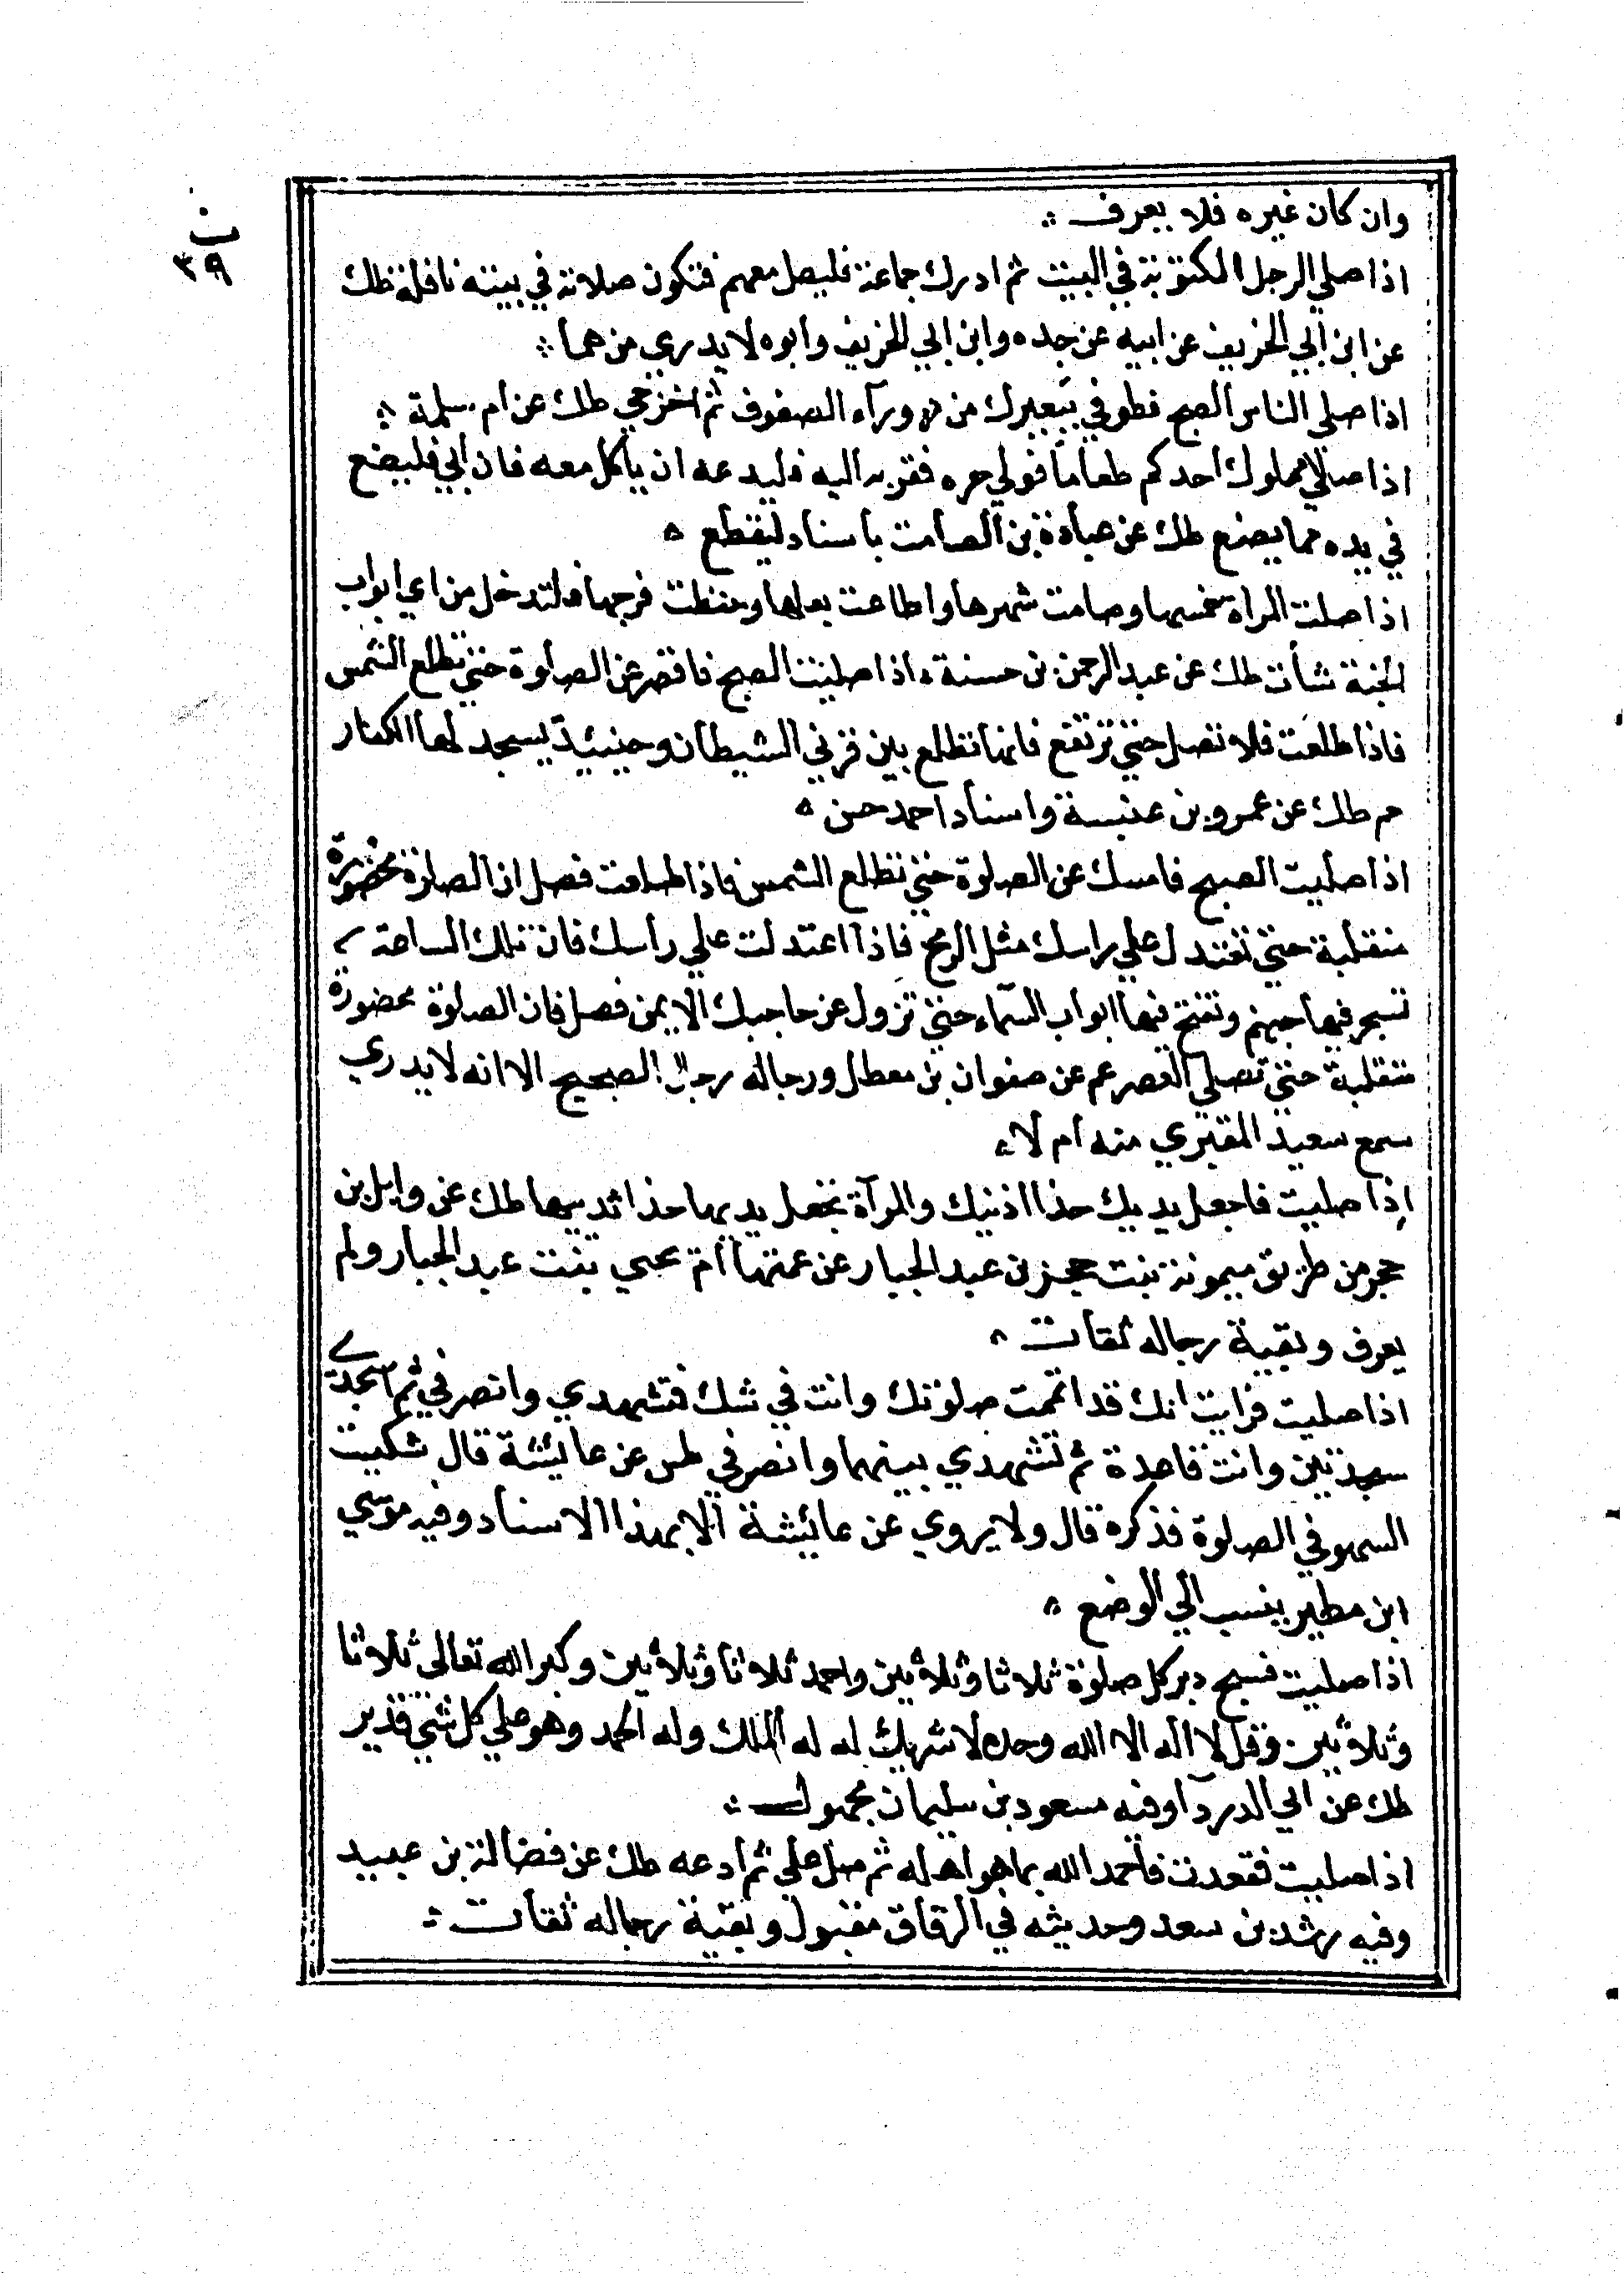 وان كان غيره فلا يعرف
ن
٣٩
اذا صلي الرجل المكتوبة في البيت ثم ادرك جماعة فليصل معهم فتكون صلاته في بيته نافلة طك
عن ابن ابي الخريف عن ابيه عن جده وابن ابي الخريف وابوه لا يدري من هما
اذا صلى الناس الصبح فطوفي ببعيرك من وراء الصفوف ثم اخرجي طك عن ام سلمة
اذا صلي مملوك احدكم طعاما فولي حره فقربه اليه فليدعه ان ياكل معه فان ابي فليضع
في يده مما يصنع طك عن عبادة بن الصامت باسناد ليقطع
اذا صلت المراة خمسها وصامت شهرها واطاعت بعلها وحفظت فرجها فلتدخل من اي ابواب
الجنة شأت طك عن عبد الرحمن بن حسنة اذا صليت الصبح فاقصر عن الصلوة حتي تطلع الشمس
فاذا طلعت فلا تصل حتي ترتفع فانها تطلع بين قرني الشيطان وحينيئذ يسجد لها الكفار
حم طك عن عمرو بن عنبسة واسناد احمد حسن
اذا صليت الصبح فامسك عن الصلوة حتي تطلع الشمس فاذا طلعت فصل ان الصلوة محضورة
متقلبة حتي تعتدل علي راسك مثل الرمح فاذا اعتدلت علي رأسك فان تلك الساعة
تسجر فيها جهنم وتفتح فيها ابواب السماء حتي تزول عن حاجبك الايمن فصل فان الصلوة محضورة
متقلبة حتي تصلي العصر عم عن صفوان بن معطل ورجاله رجال الصحيح الا انه لا يدري
سمع سعيد المقبري منه ام لا
اذا صليت فاجعل يديك حذا اذنيك والمرآة تجعل يديها حذا ثدييها طك عن وايل بن
حجر من طريق ميمونة بنت حجر بن عبد الجبار عن عمتها ام يحيي بنت عبد الجبار ولم
يعرف وبقية رجاله ثقات
اذا صليت فرايت انك قد اتممت صلوتك وانت في شك فتشهدي وانصرفي ثم اسجدي
سجدتين وانت قاعدة ثم تشهدي بينهما وانصرفي طس عن عايشة قال شكيت
السهو في الصلوة فذكره قال ولا يروي عن عائيشة الا بهذا الاسناد وفيه موسي
ابن مطير ينسب الي الوضع
اذا صليت فسبح دبر كل صلوة ثلاثا وثلاثين واحمد ثلاثا وثلاثين وكبر الله تعالى ثلاثا
وثلاثين وقل لا اله الا الله وحده لا شريك له له الملك وله الحمد وهو علي كل شي قدير
طك عن ابي الدردآ وفيه مسعود بن سليمان مجهول
اذا صليت فقعدت فاحمد الله بما هو اهله ثم صل علي ثم ادعه طك عن فضالة بن عبيد
وفيه رشد بن سعد وحديثه في الرقاق مقبول وبقية رجاله ثقات